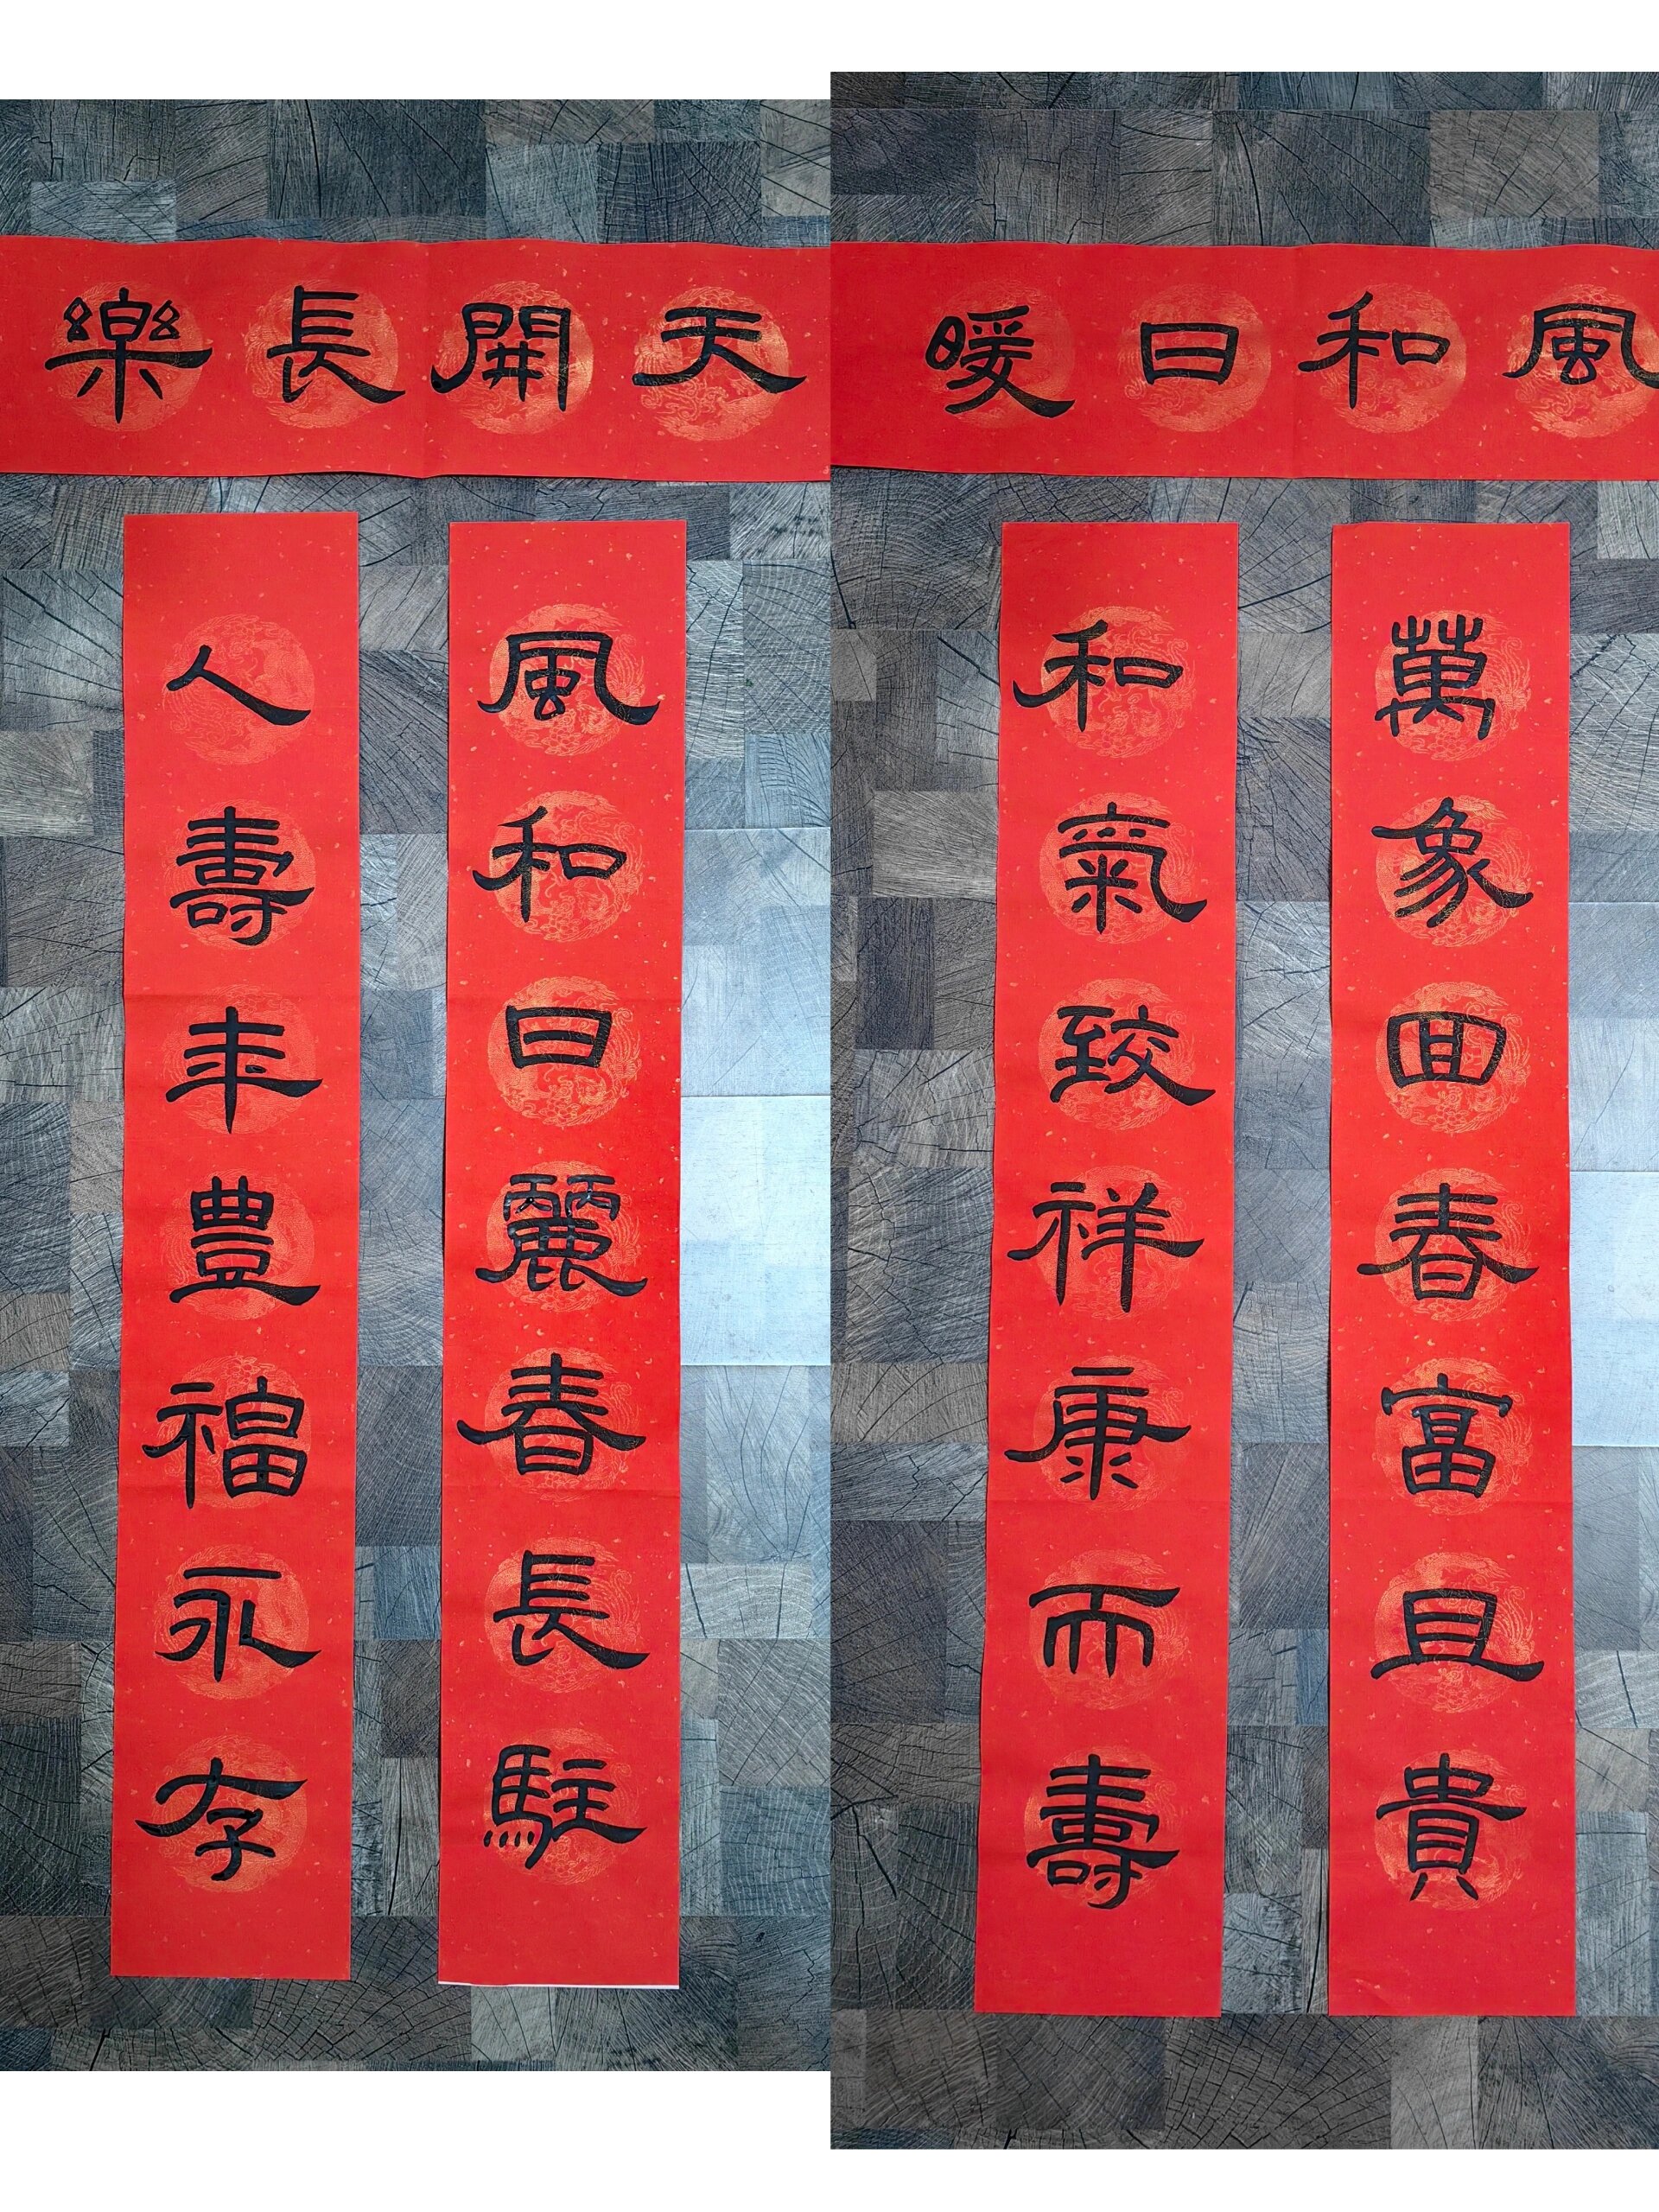 天開長樂
風和日麗春長駐
人壽年豐福永存
風和日暖
萬象回春富且貴
和氣致祥康而壽